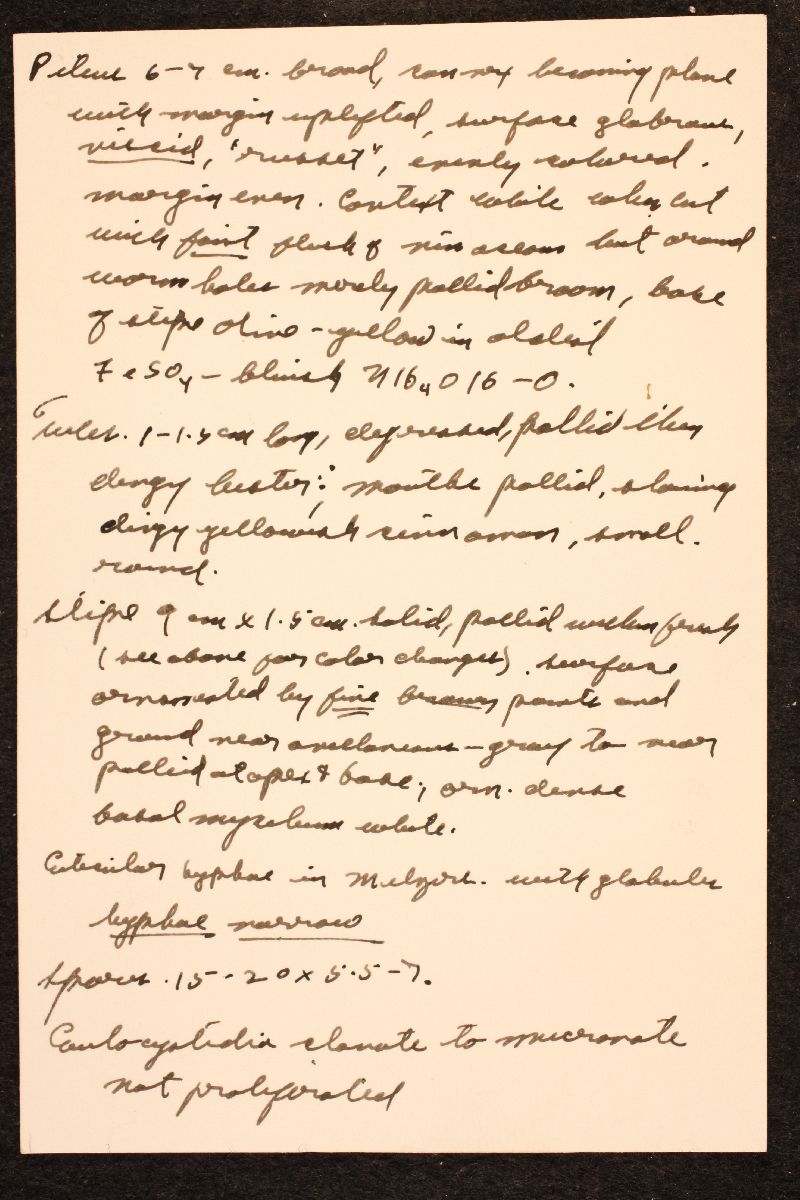 Pileus 6-7 cm. broad, convex becoming plane
with margin uplifted, surface glabrous,
viscid, "russet", evenly colored.
margin even. Context white when cut
with faint flush of vinaceous but around
worm holes merely pallid brown, base
of stipe olive-yellow in
FeSO4 - bluish NH4OH - O.
Tubes. 1-1.5 cm long, depressed, pallid then
dingy; mouths pallid, staining
dingy yellowish cinnamon, small.
round.
Stipe 9 cm x 1.5 cm. solid, pallid within fresh
(see above for color changes). surface
ornamented by fine brown points and
ground near avellaneous-gray to near
pallid at apex & base; orn. dense
basal mycelium white.
Cuticular hyphae in Melzers. with globules
hyphae narrow
Spores. 15-20 x 5.5-7.
Caulocystidia clavate to mucronate
not proliferated